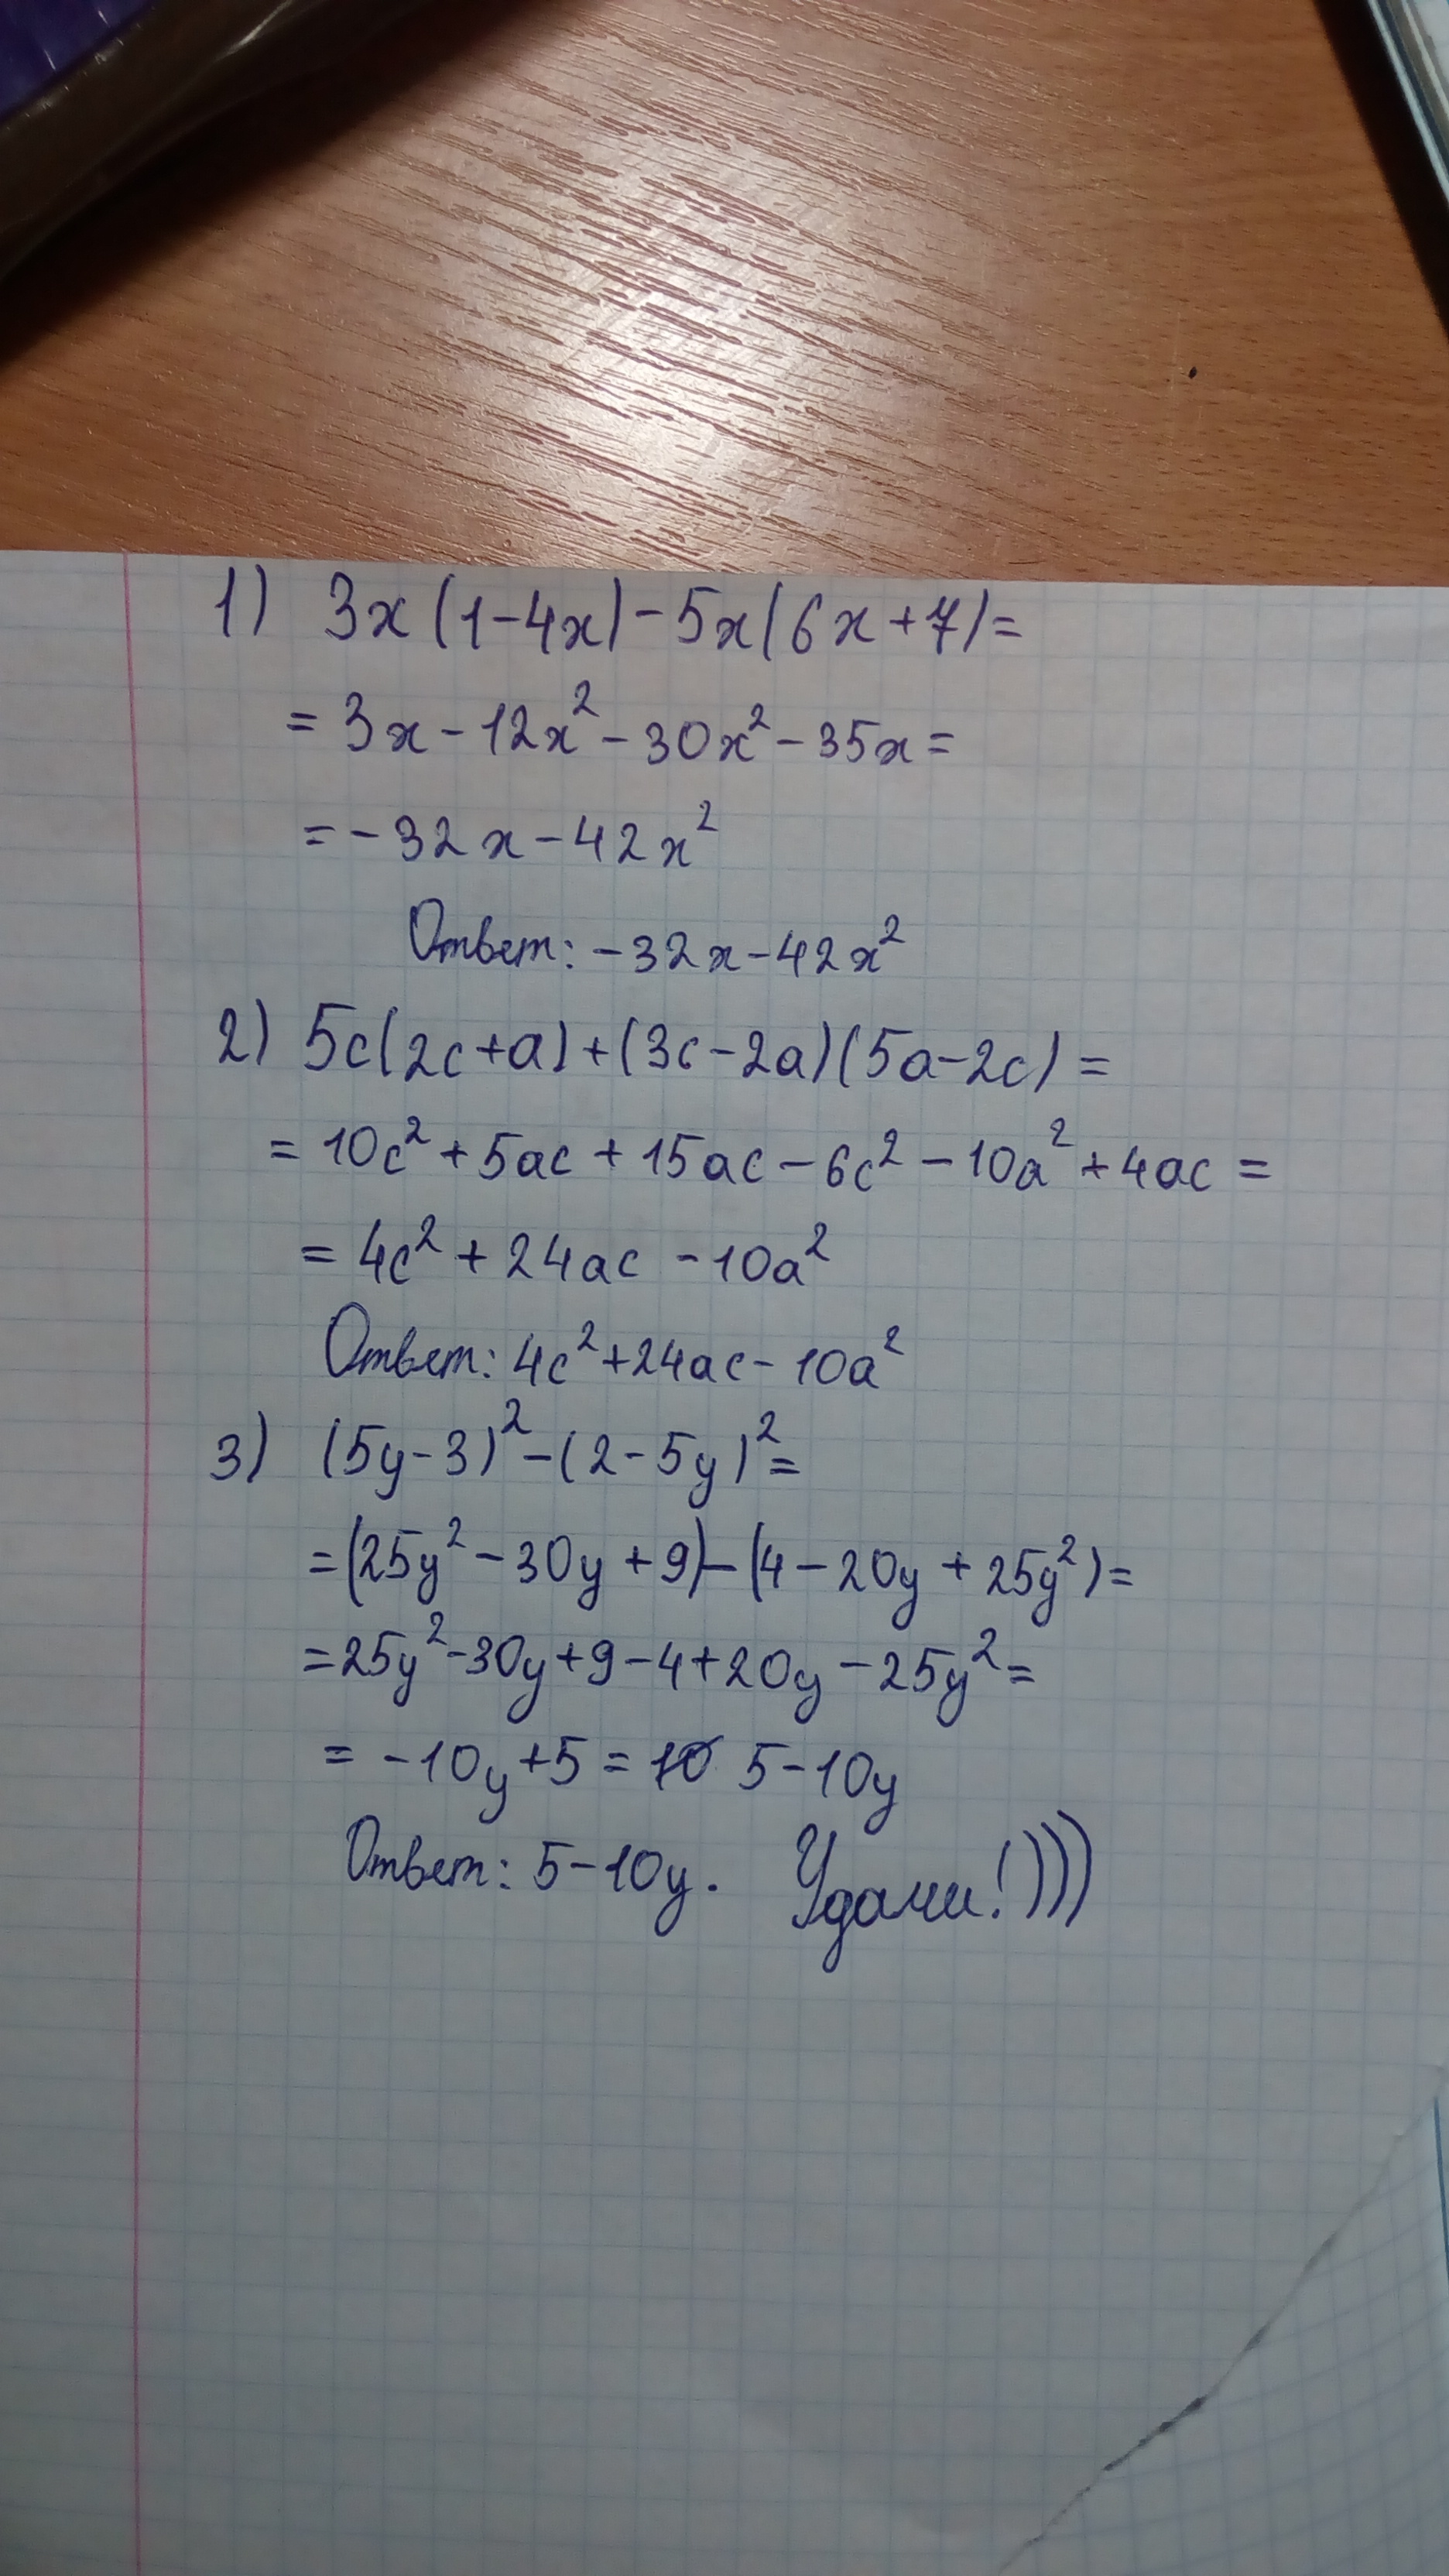 1) 3x(1-4x)-5x(6x+7)=
= 3x-12x²-30x²-35x=
=-32x-42x²
Ответ: -32x-42x²
2) 5c(2c+a)+(3c-2a)(5a-2c)=
= 10c²+5ac+15ac-6c²-10a²+4ac=
= 4c²+24ac-10a²
Ответ: 4c²+24ac-10a²
3) (5y-3)²-(2-5y)²=
=(25y²-30y+9)-(4-20y+25y²)=
=25y²-30y+9-4+20y-25y²=
= -10y+5= 10 5-10y
Ответ: 5-10y. Удачи!)))